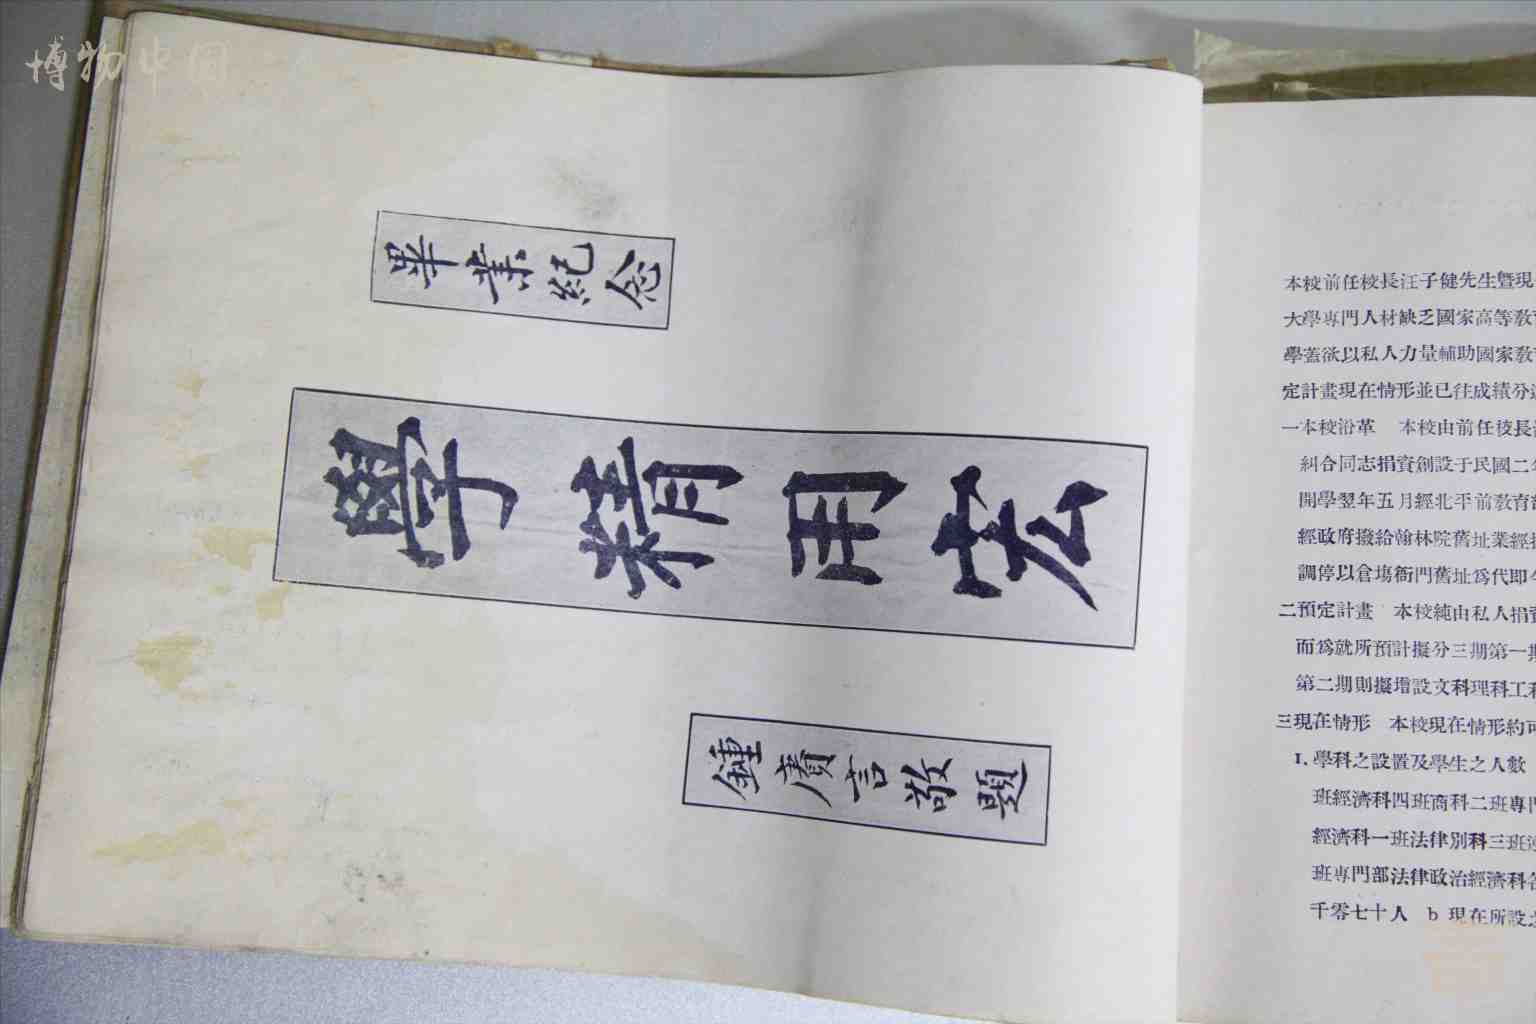 博物中国
畢業紀念
學精用宏
鍾賡言敬題
本校前任校長汪子健先生曁現
大學専門人材缺乏國家高等敎育
學蓋欲以私人力量輔助國家敎育
定計畫現在情形並已往成績分
一本校沿革 本校由前任校長
糾合同志捐資創設于民國二年
開學翌年五月經北平前敎育部
經政府撥給翰林院舊址業經
調停以倉塲衙門舊址爲代即今
二預定計畫 本校純由私人捐資
而爲就所預計擬分三期第一期
第二期則擬增設文科理科工科
三現在情形 本校現在情形約可
1.學科之設置及學生之人數
班經濟科四班商科二班専門
經濟科一班法律別科三班
班専門部法律政治經濟科各
千零七十人 b 現在所設之